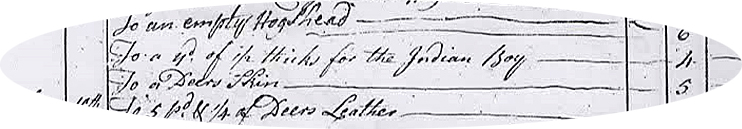 To an empty Hogshead 6
To a yd. of p thicks for the Indian Boy 4
To a Deers Skin 5
To 5 pd & 1/4 of Deers Leather